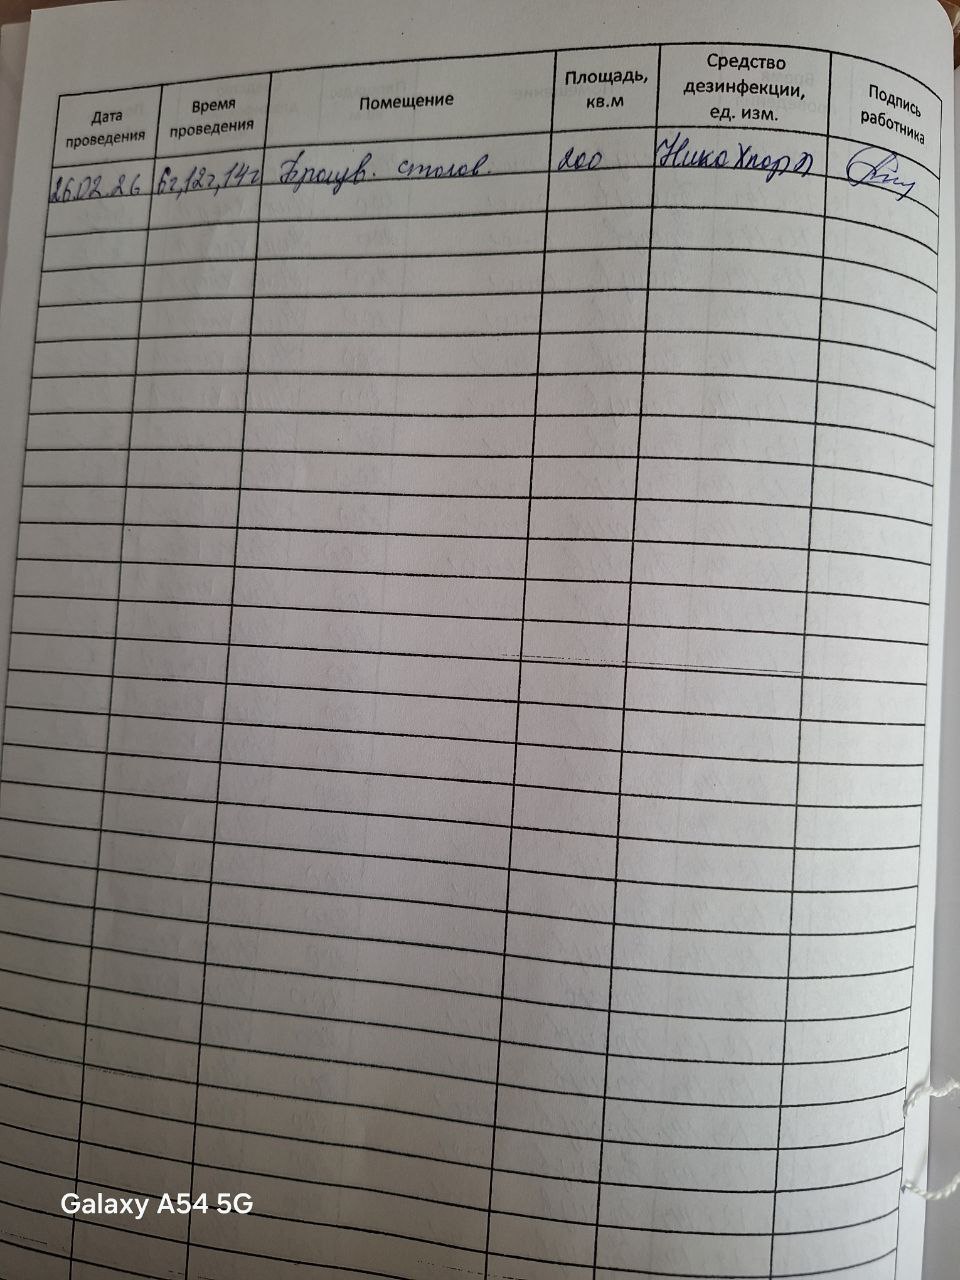 Дата проведения
Время проведения
Помещение
Площадь, кв.м
Средство дезинфекции, ед. изм.
Подпись работника
26.02.26 6ч,12ч,14ч столов. 200 Ника Хлор
Galaxy A54 5G